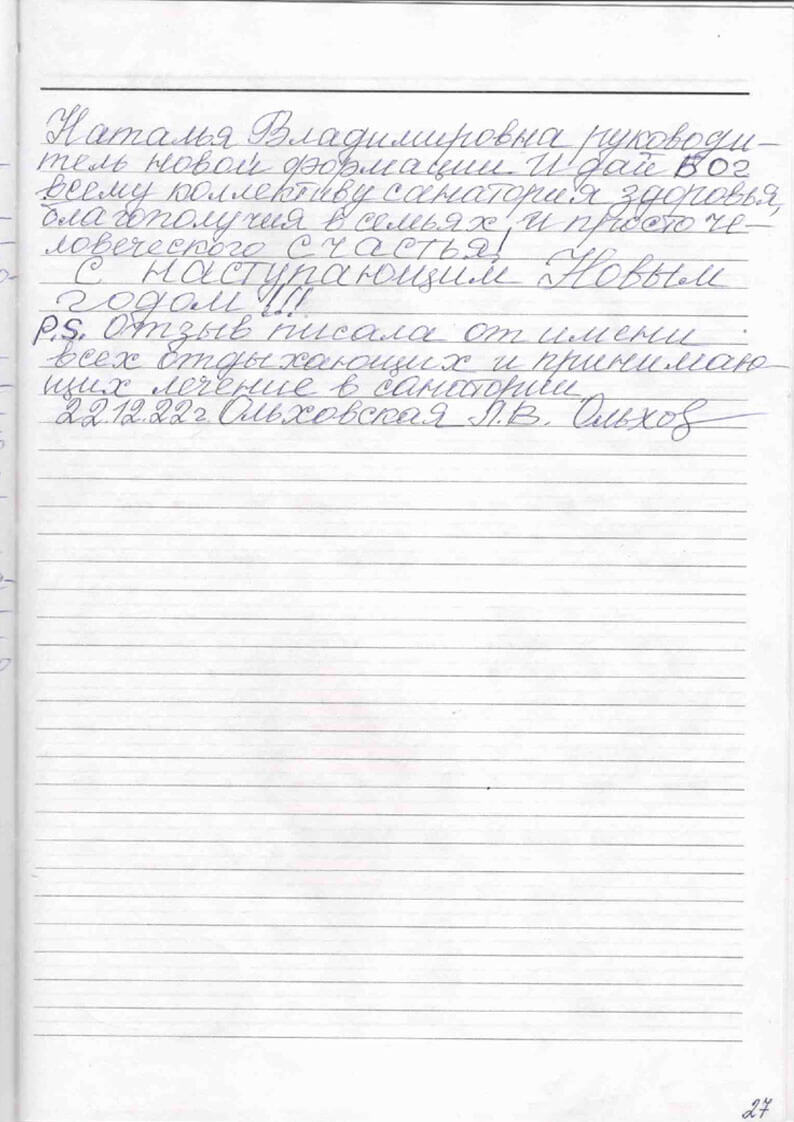 Наталья Владимировна руководи-
тель новой формации. И дай Бог
всему коллективу санатория здоровья,
благополучия в семьях, и просто че-
ловеческого счастья!
С наступающим Новым
годом!!!
P.S. Отзыв писала от имени
всех отдыхающих и принимаю-
щих лечение в санатории.
22.12.22г. Ольховская Л.В. Ольхов
27